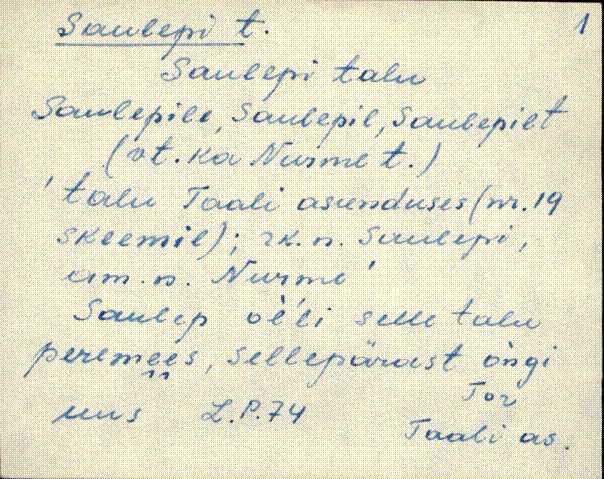 Saulepi t. 1
Saulepi talu
Saulepile, Saulepil, Saulepilt
(vt. ka Nurme t.)
'talu Taali asunduses (nr. 19
skeemil); rk. n. Saulepi,
am. n. Nurme'
Saulep òĺi selle talu
peremees, sellepärast òngi
uus L.P.74 Tor
Taali as.